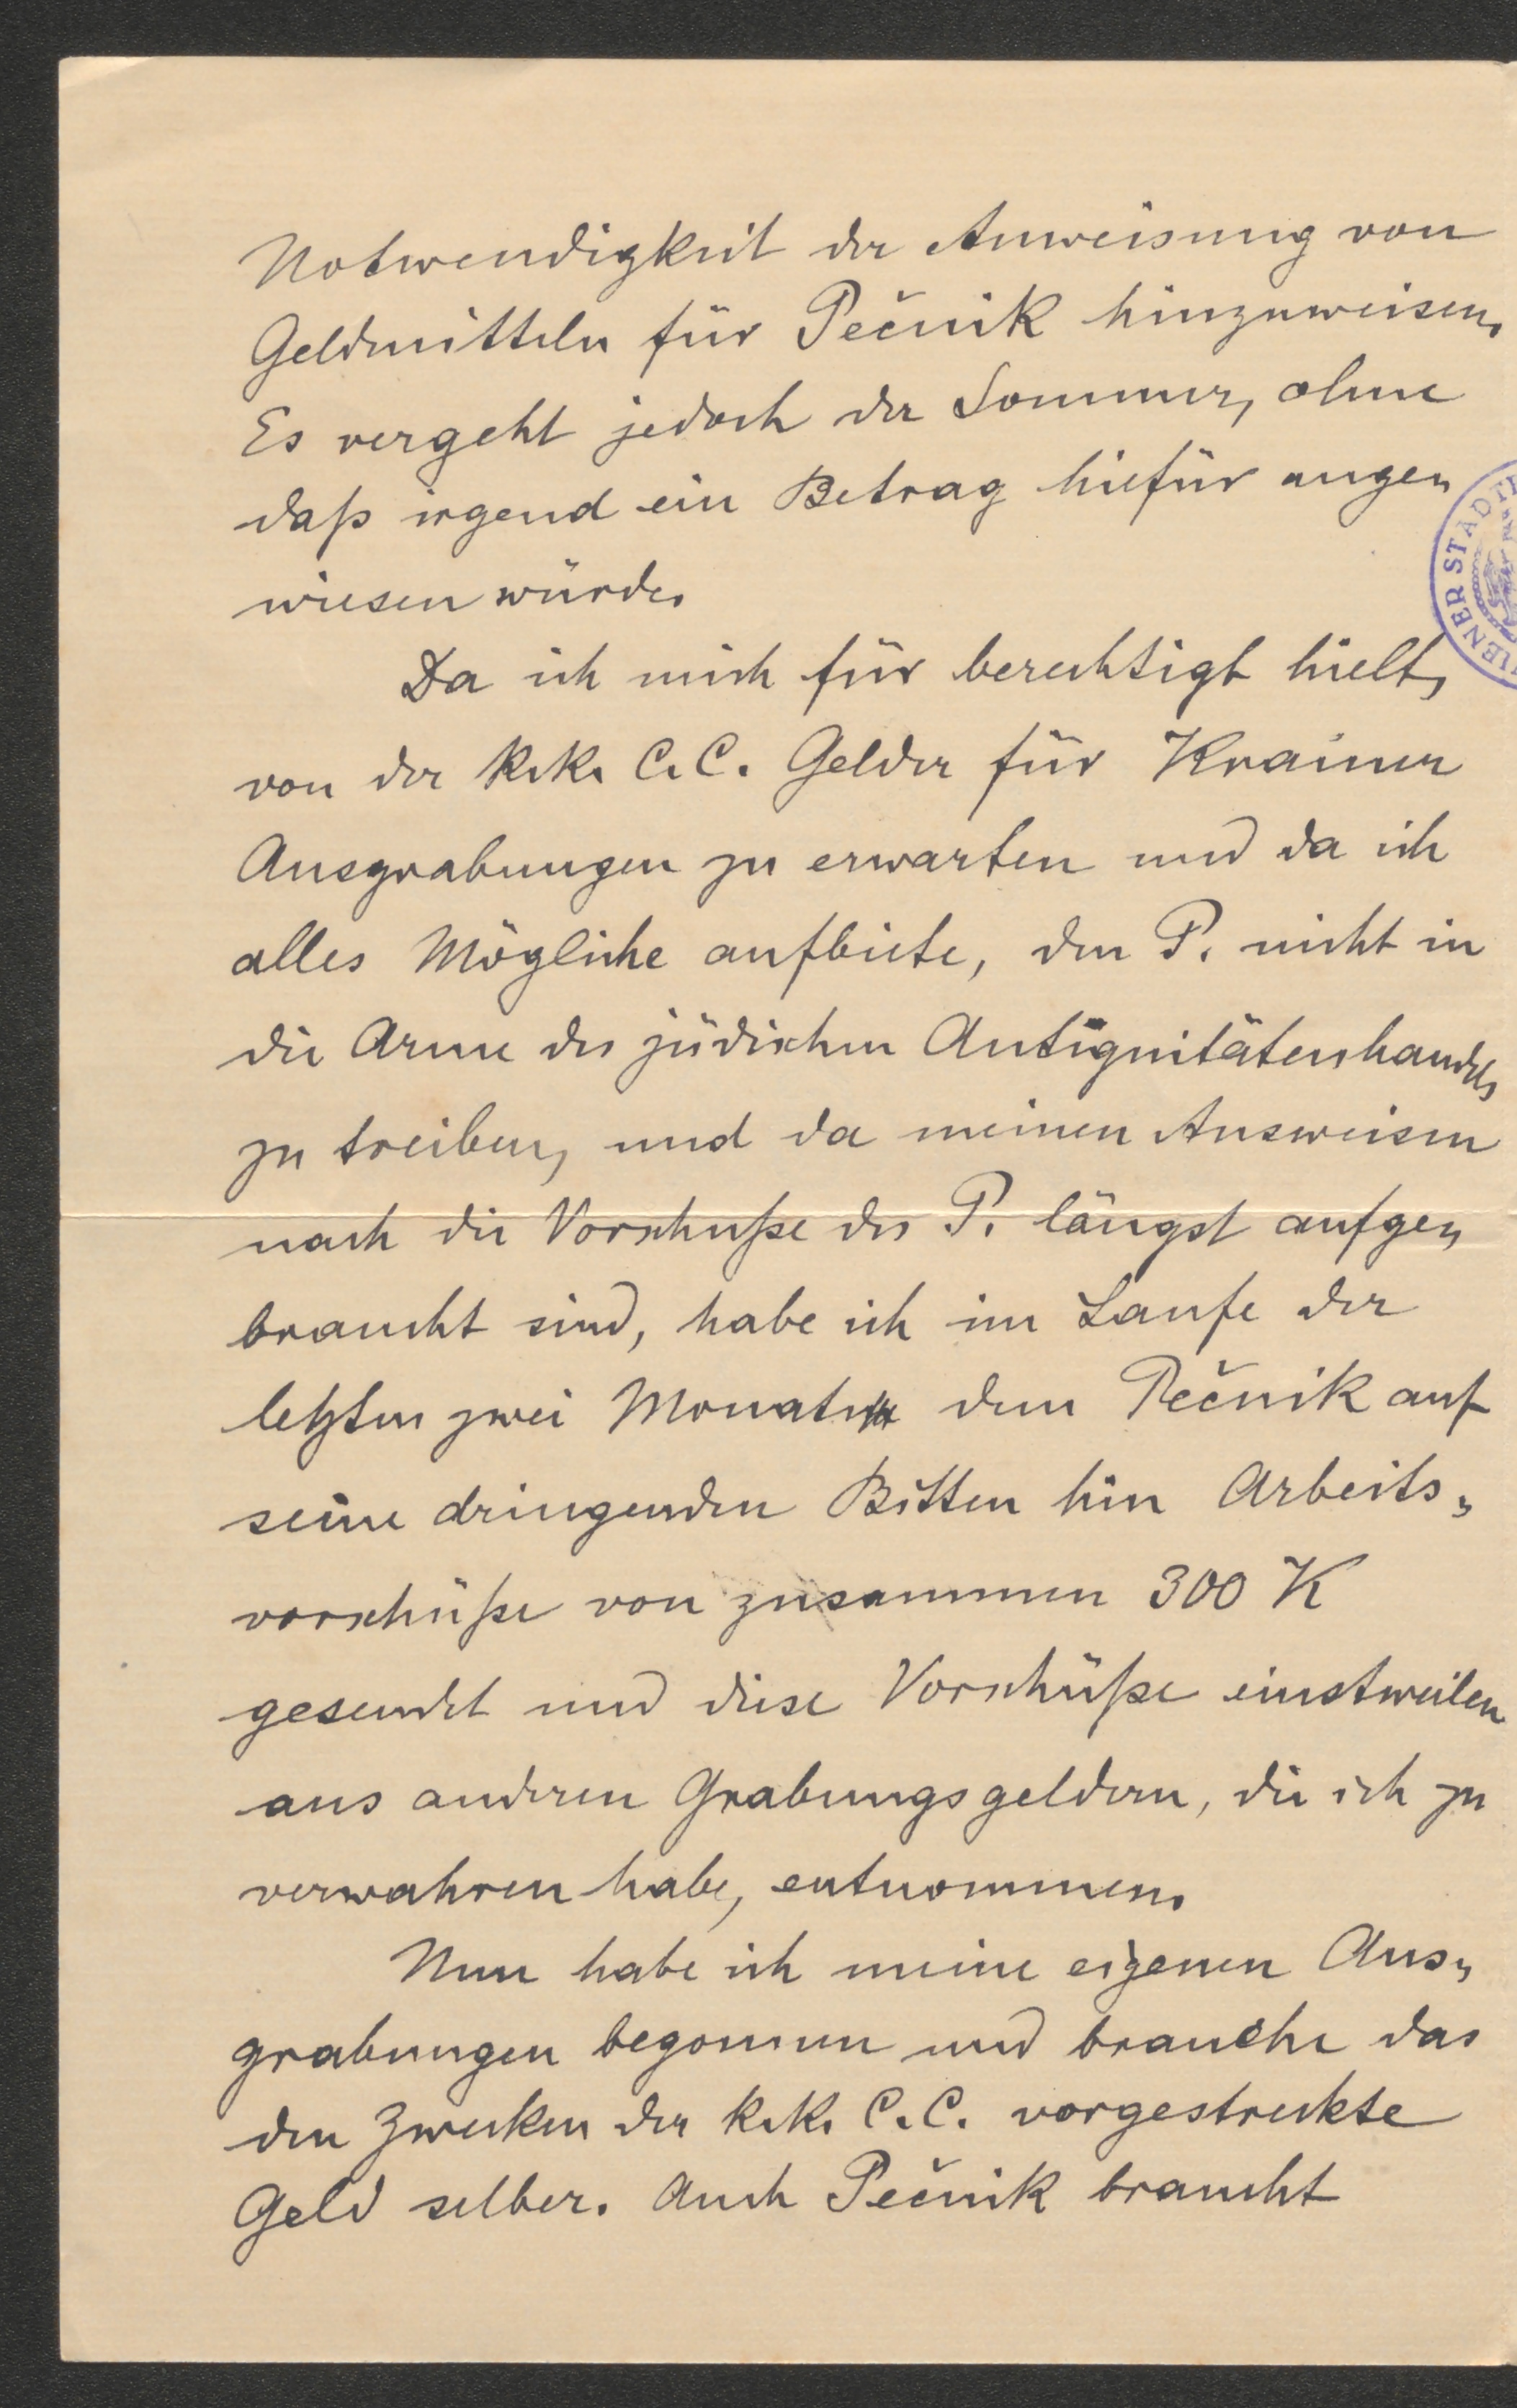 Notwendigkeit der Anweisung von
Geldmitteln für Pečnik hinzuweisen.
Es vergeht jedoch der Sommer, ohne
daß irgend ein Betrag hiefür ange„
wiesen würde.
Da ich mich für berechtigt hielt,
von der k.k. C.C. Gelder für Krainer
Ausgrabungen zu erwarten und da ich
alles Mögliche aufbiete, den P. nicht in
die Arme des jüdischen Antiquitätenhandels
zu treiben, und da meinen Ausweisen
nach die Vorschuße des P. längst aufge„
braucht sind, habe ich im Laufe der
letzten zwei Monate dem Pečnik auf
seine dringenden Bitten hin Arbeits„
vorschüße von zusammen 300 K
gesendet und diese Vorschüße einstweilen
aus anderen Grabungsgeldern, die ich zu
verwahren habe, entnommen.
Nun habe ich meine eigenen Aus„
grabungen begonnen und brauche das
den Zwecken der k.k. C.C. vorgestreckte
Geld selber. Auch Pečnik braucht
IENER STÄDTI